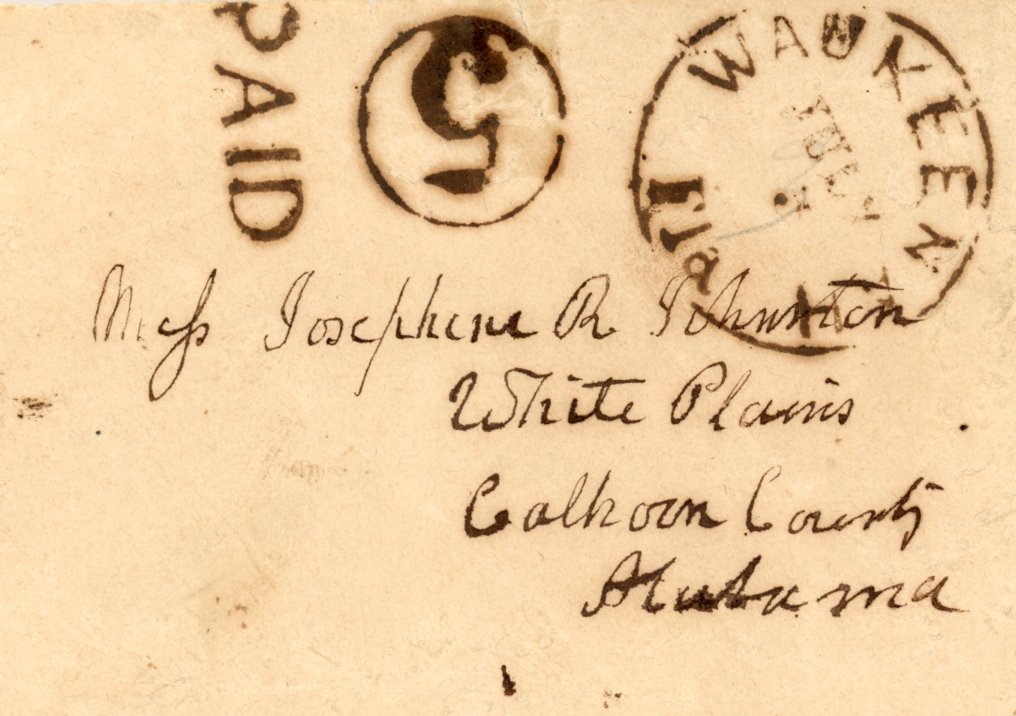 PAID
5
WAUKEENAH
Fla
Miss Josephine R Johnston
White Plains
Calhoon County
Alabama